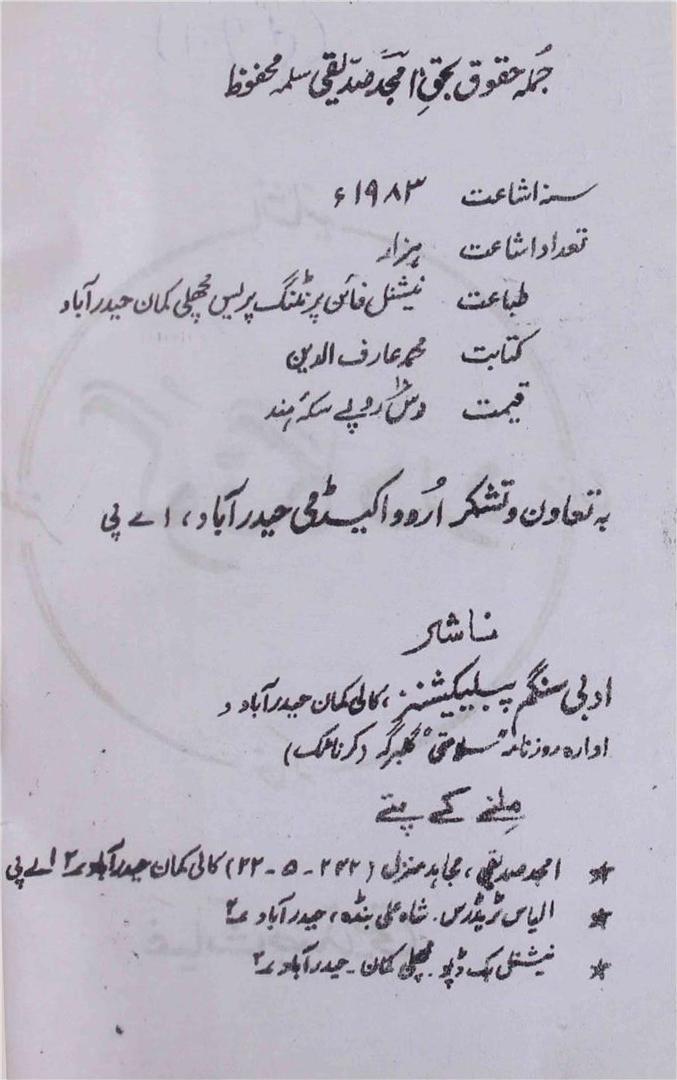 جملہ حقوق بحق امجد صدیقی سلمہ محفوظ
سنہ اشاعت ۱۹۸۳ء
تعداد اشاعت ہزار
طباعت نیشنل فائن پرنٹنگ پریس مچھلی کمان حیدرآباد
کتابت محمد عارف الدین
قیمت دس ۱۰ روپے سکۂ ہند
بہ تعاون و تشکر اُردو اکیڈمی حیدرآباد، اے پی
ناشر
ادبی سنگم پبلیکیشنز، کالی کمان حیدرآباد و
ادارہ روزنامہ "سلامتی" گلبرگہ (کرناٹک)
مِلنے کے پتے
* امجد صدیقی، مجاہد منزل (۲۴۲-۵-۲۲) کالی کمان حیدرآباد ۲ اے پی
* الیاس ٹریڈرس. شاہ علی بنڈہ، حیدرآباد ۲
* نیشنل بک ڈپو. مچھلی کمان - حیدرآباد ۲